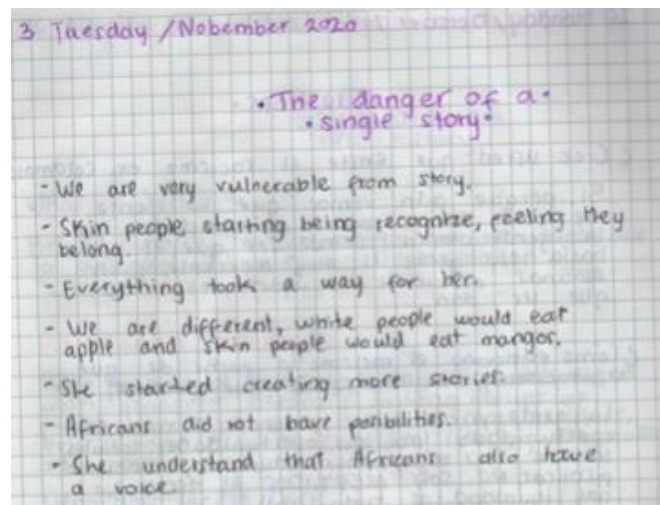 3 Tuesday / Nobember 2020
• The danger of a •
• single story •
- We are very vulnerable from story.
- Skin people starting being recognize, feeling they
belong.
- Everything took a way for her.
- We are different, white people would eat
apple and skin people would eat mangos.
- She started creating more stories.
- Africans did not have posibilities.
- She understand that Africans also have
a voice.